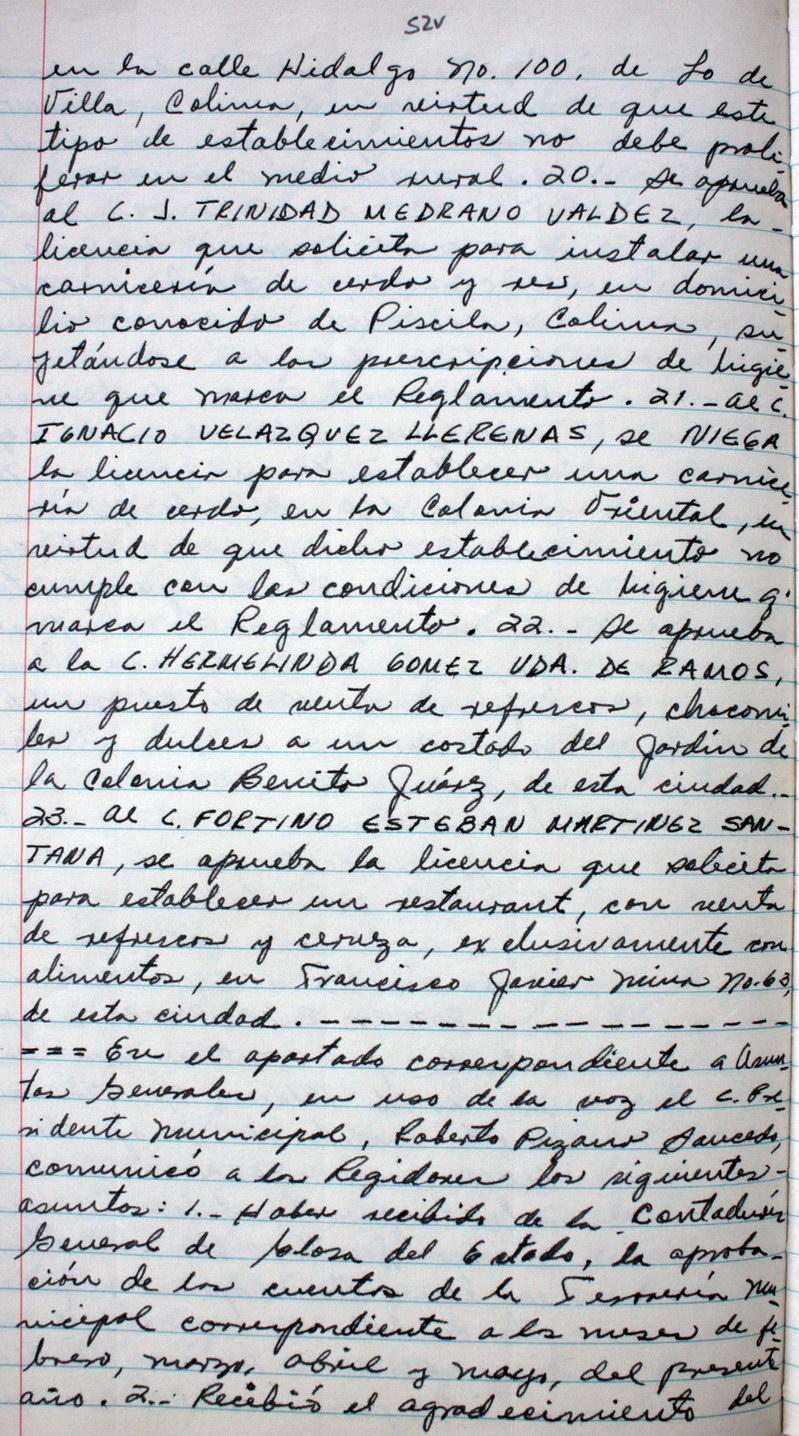 52V
en la calle Hidalgo No. 100, de Lo de
Villa, Colima, en virtud de que este
tipo de establecimientos no debe proli-
ferar en el medio rural. 20.- Se aprueba
al C. J. TRINIDAD MEDRANO VALDEZ, la-
licencia que solicita para instalar una
carnicería de cerdo y res, en domici-
lio conocido de Piscila, Colima, su
jetándose a las prescripciones de higie-
ne que marca el Reglamento. 21.- Al C.
IGNACIO VELAZQUEZ LLERENAS, se NIEGA
la licencia para establecer una carnice-
ría de cerdo, en la Colonia Oriental, en
virtud de que dicho establecimiento no
cumple con las condiciones de higiene q'
marca el Reglamento. 22.- Se aprueba
a la C. HERMELINDA GOMEZ VDA. DE RAMOS,
un puesto de venta de refrescos, chocomi-
les y dulces a un costado del Jardín de
la Colonia Benito Juárez, de esta ciudad.-
23.- Al C. FORTINO ESTEBAN MARTINEZ SAN-
TANA, se aprueba la licencia que solicita
para establecer un restaurant, con venta
de refrescos y cerveza, exclusivamente con
alimentos, en Francisco Javier Mina No. 63,
de esta ciudad. - - - - - - - - - - - - - - - -
=== En el apartado correspondiente a Asun-
tos Generales, en uso de la voz el C. Pre-
sidente Municipal, Roberto Pizano Saucedo,
comunicó a los Regidores los siguientes-
asuntos: 1.- Haber recibido de la Contaduría
General de Glosa del Estado, la aproba-
ción de las cuentas de la Tesorería Mu-
nicipal correspondiente a los meses de fe-
brero, marzo, abril y mayo, del presente
año. 2.- Recibió el agradecimiento del